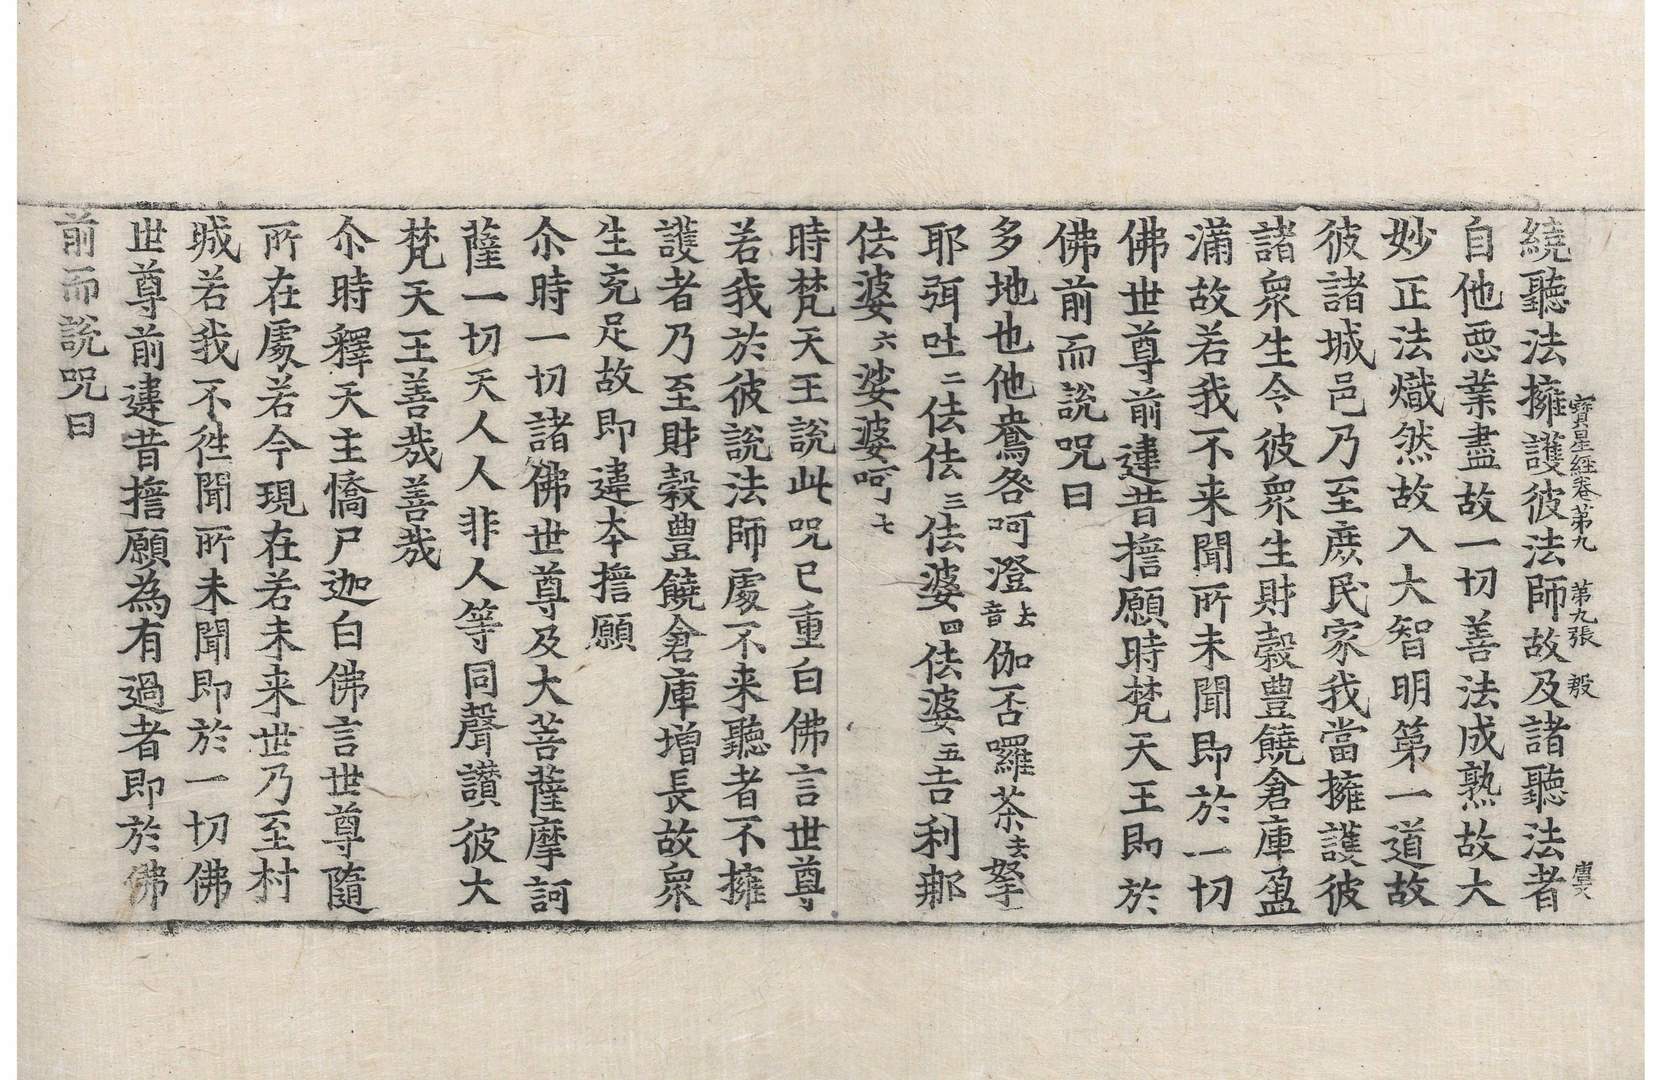 寶星経卷第九　第九張　殷
繞聽法擁護彼法師故及諸聽法者
自他悪業盡故一切善法成熟故大
妙正法熾然故入大智明第一道故
彼諸城邑乃至庶民家我當擁護彼
諸衆生今彼衆生財穀豊饒倉庫盈
滿故若我不来聞所未聞即於一切
佛世尊前違昔擔願時梵天王即於
佛前而說呪曰
多地也他 鴦咎呵澄上音伽否囉荼去拏一
耶弭吐二佉佉三佉婆四佉婆五吉利那
佉婆六娑婆呵七
時梵天王說此呪已重白佛言世尊
若我於彼說法師處不来聽者不擁
護者乃至財穀豊饒倉庫増長故衆
生充足故即違夲擔願
尒時一切諸佛世尊及大菩薩摩訶
薩一切天人人非人等同聲讃彼大
梵天王善哉善哉
尒時釋天主憍尸迦白佛言世尊隨
所在處若今現在若未来世乃至村
城若我不徃聞所未聞即於一切佛
世尊前違昔擔願為有過者即於佛
前而說呪曰